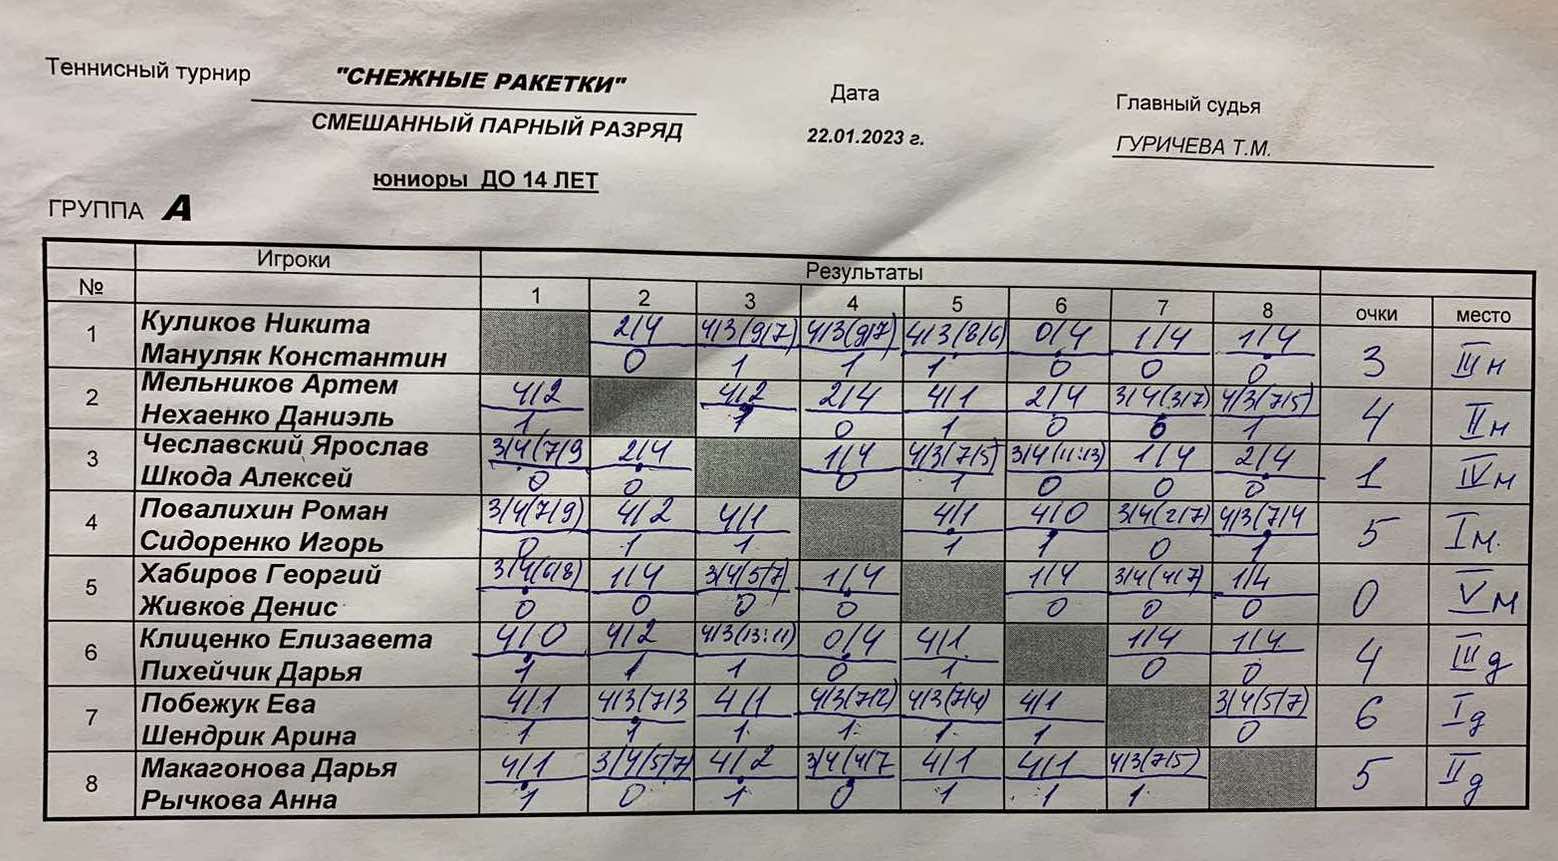 Теннисный турнир "СНЕЖНЫЕ РАКЕТКИ" Дата Главный судья
СМЕШАННЫЙ ПАРНЫЙ РАЗРЯД 22.01.2023 г. ГУРИЧЕВА Т.М.
юниоры ДО 14 ЛЕТ
ГРУППА А
Игроки Результаты
№ 1 2 3 4 5 6 7 8 очки место
Куликов Никита 2/4 4/3(9/7) 4/3(9/7) 4/3(8/6) 0/4 1/4 1/4
1 3 III м
Мануляк Константин 0 1 1 1 0 0 0
Мельников Артем 4/2 4/2 2/4 4/1 2/4 3/4(3/7) 4/3(7/5)
2 4 II м
Нехаенко Даниэль 1 1 0 1 0 0 1
Чеславский Ярослав 3/4(7/9 2/4 1/4 4/3(7/5) 3/4(11:13) 1/4 2/4
3 1 IV м
Шкода Алексей 0 0 0 1 0 0 0
Повалихин Роман 3/4(7/9) 4/2 4/1 4/1 4/0 3/4(2/7) 4/3(7/4
4 5 I м.
Сидоренко Игорь 0 1 1 1 1 0 1
Хабиров Георгий 3/4(6/8) 1/4 3/4(5/7) 1/4 1/4 3/4(4/7) 1/4
5 0 V м
Живков Денис 0 0 0 0 0 0 0
Клиценко Елизавета 4/0 4/2 4/3(13:11) 0/4 4/1 1/4 1/4
6 4 III д
Пихейчик Дарья 1 1 1 0 1 0 0
Побежук Ева 4/1 4/3(7/3 4/1 4/3(7/2) 4/3(7/4) 4/1 3/4(5/7)
7 6 I д
Шендрик Арина 1 1 1 1 1 1 0
Макагонова Дарья 4/1 3/4(5/7) 4/2 3/4(4/7 4/1 4/1 4/3(7/5)
8 5 II д
Рычкова Анна 1 0 1 0 1 1 1